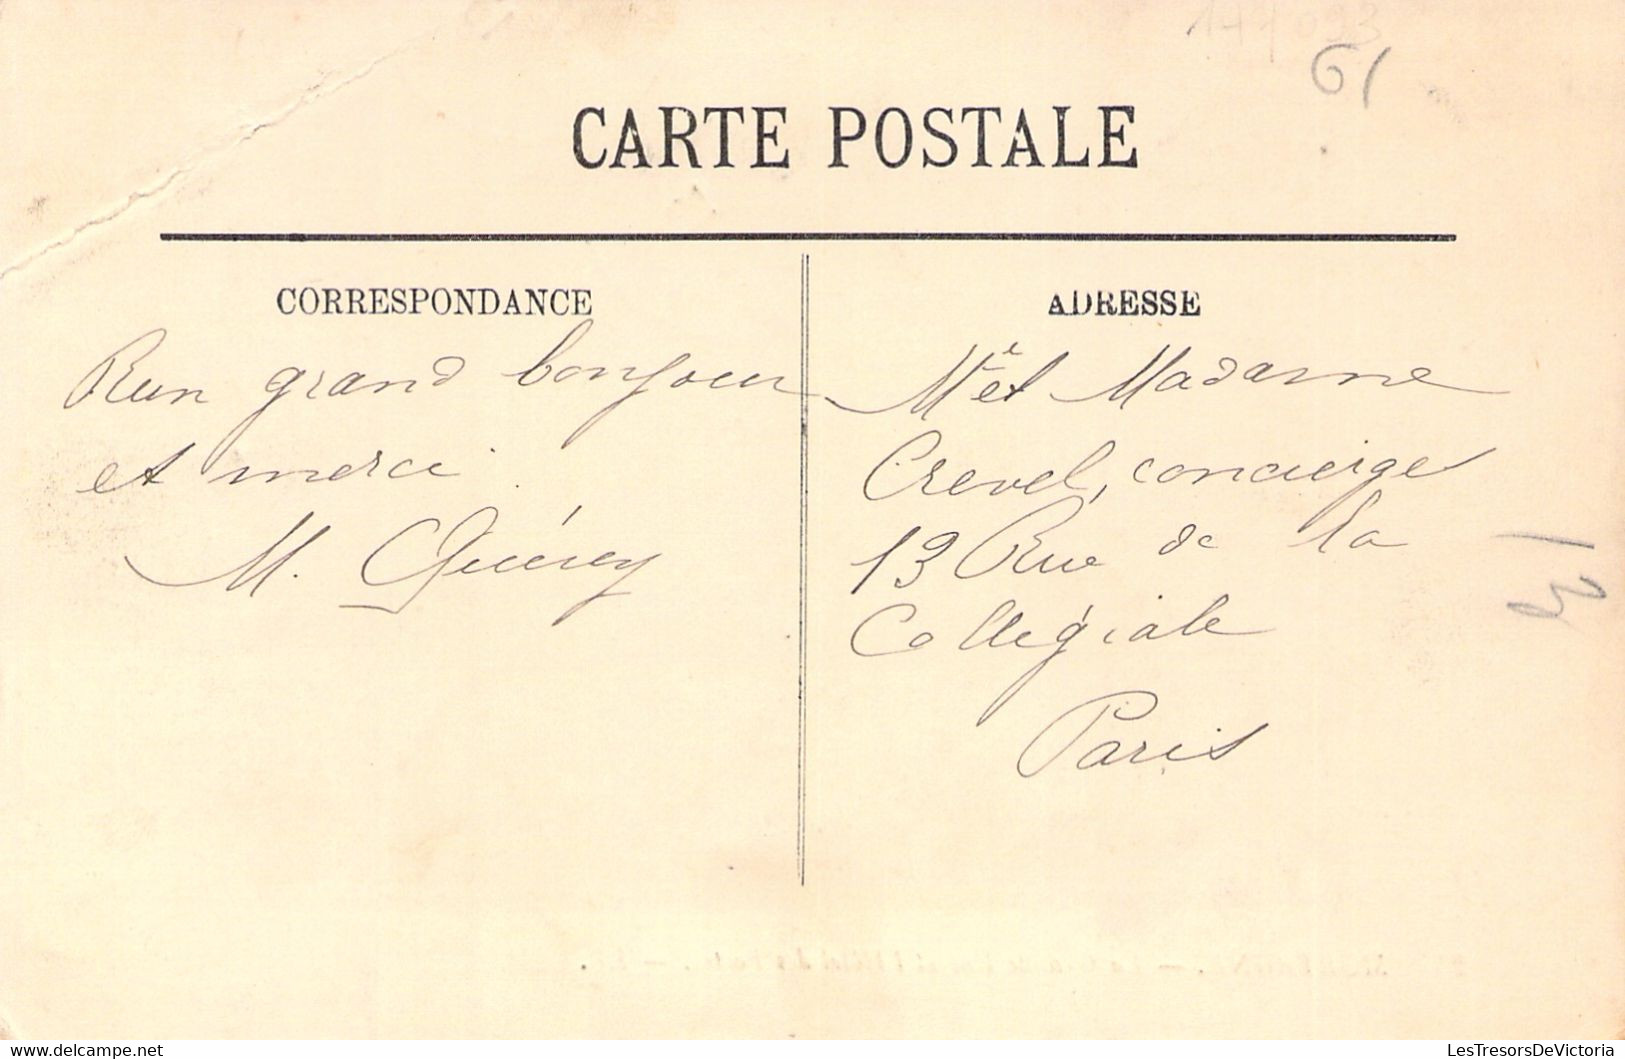 61
CARTE POSTALE
CORRESPONDANCE
Run grand bonjour
et merci
M. Quérey
ADRESSE
Mr et Madame
Crevel, concierges
13 Rue de la
Collégiale
Paris
LesTresorsDeVictoria